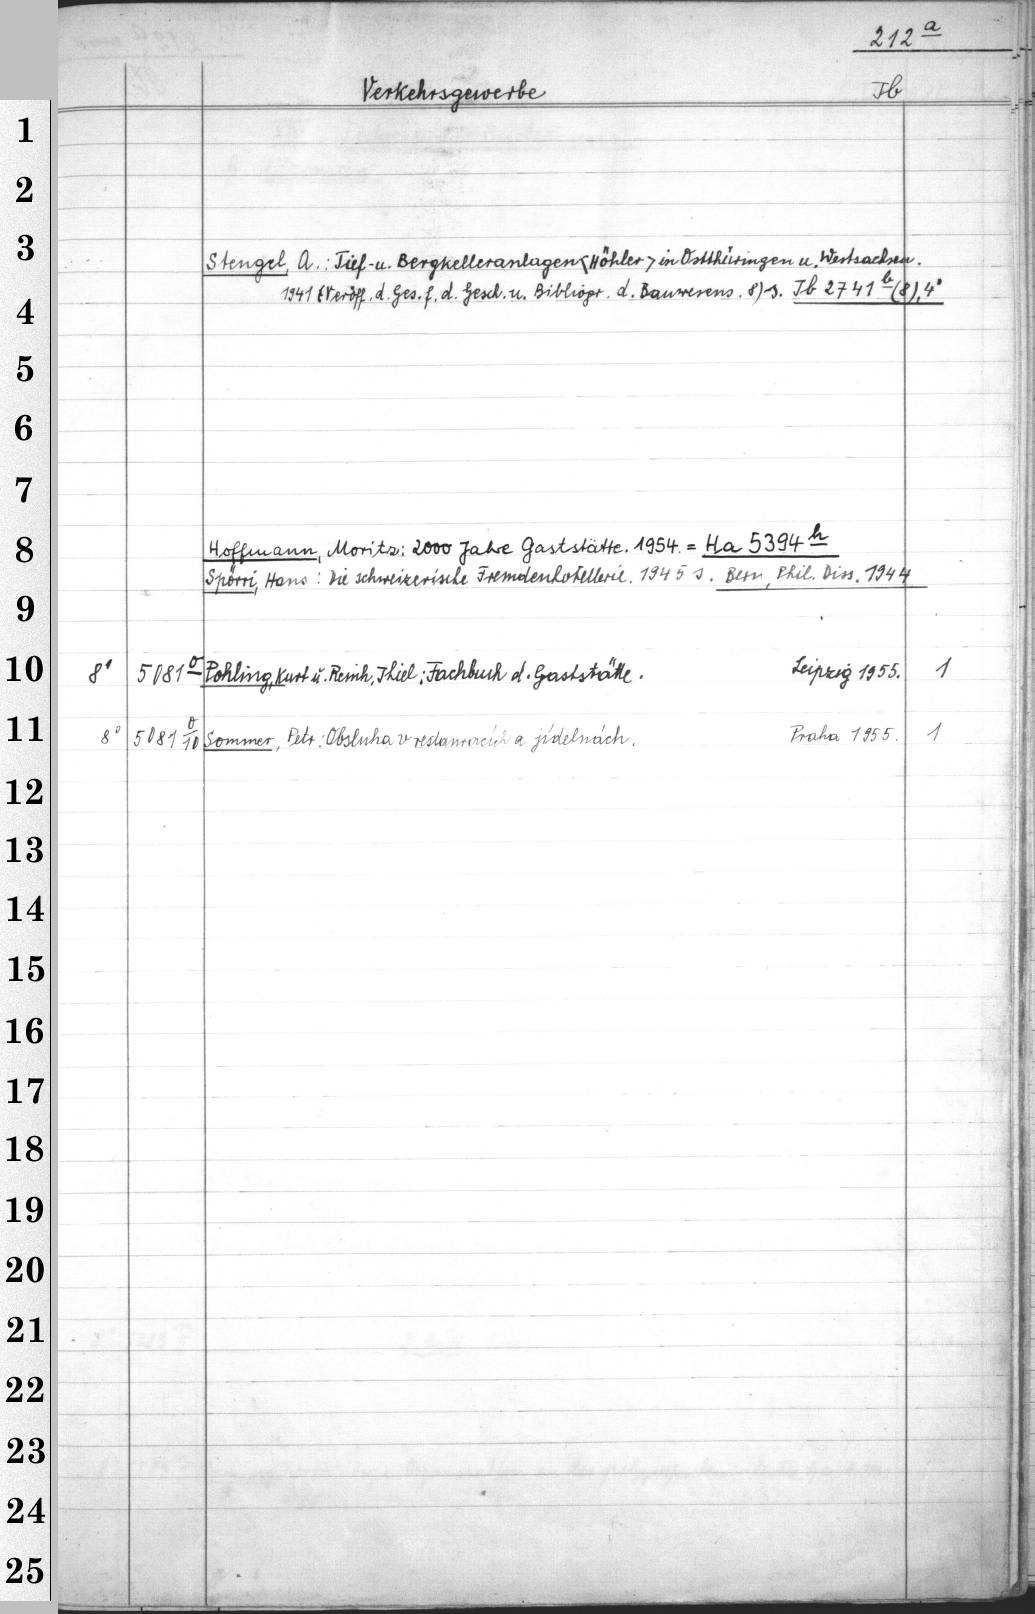 212 a
Verkehrsgewerbe Jb
1
2
3
Stengel, A.: Tief- u. Bergkelleranlagen <Höhler> in Ostthüringen u. Westsachsen.
1941 (Veröff. d. Ges. f. d. Gesch. u. Bibliogr. d. Bauwesens. 8) = Jb 2741 b (8), 4°
4
5
6
7
8
Hoffmann, Moritz: 2000 Jahre Gaststätte. 1954. = Ha 5394 h
Spörri, Hans: Die schweizerische Fremdenhotellerie. 1945 s. Bern, Phil. Diss. 1944
9
10 8° 5081 o Pohling, Kurt u. Reinh. Thiel: Fachbuch d. Gaststätte. Leipzig 1955. 1
11 8° 5081 o/10 Sommer, Petr: Obsluha v restauracích a jídelnách. Praha 1955. 1
12
13
14
15
16
17
18
19
20
21
22
23
24
25